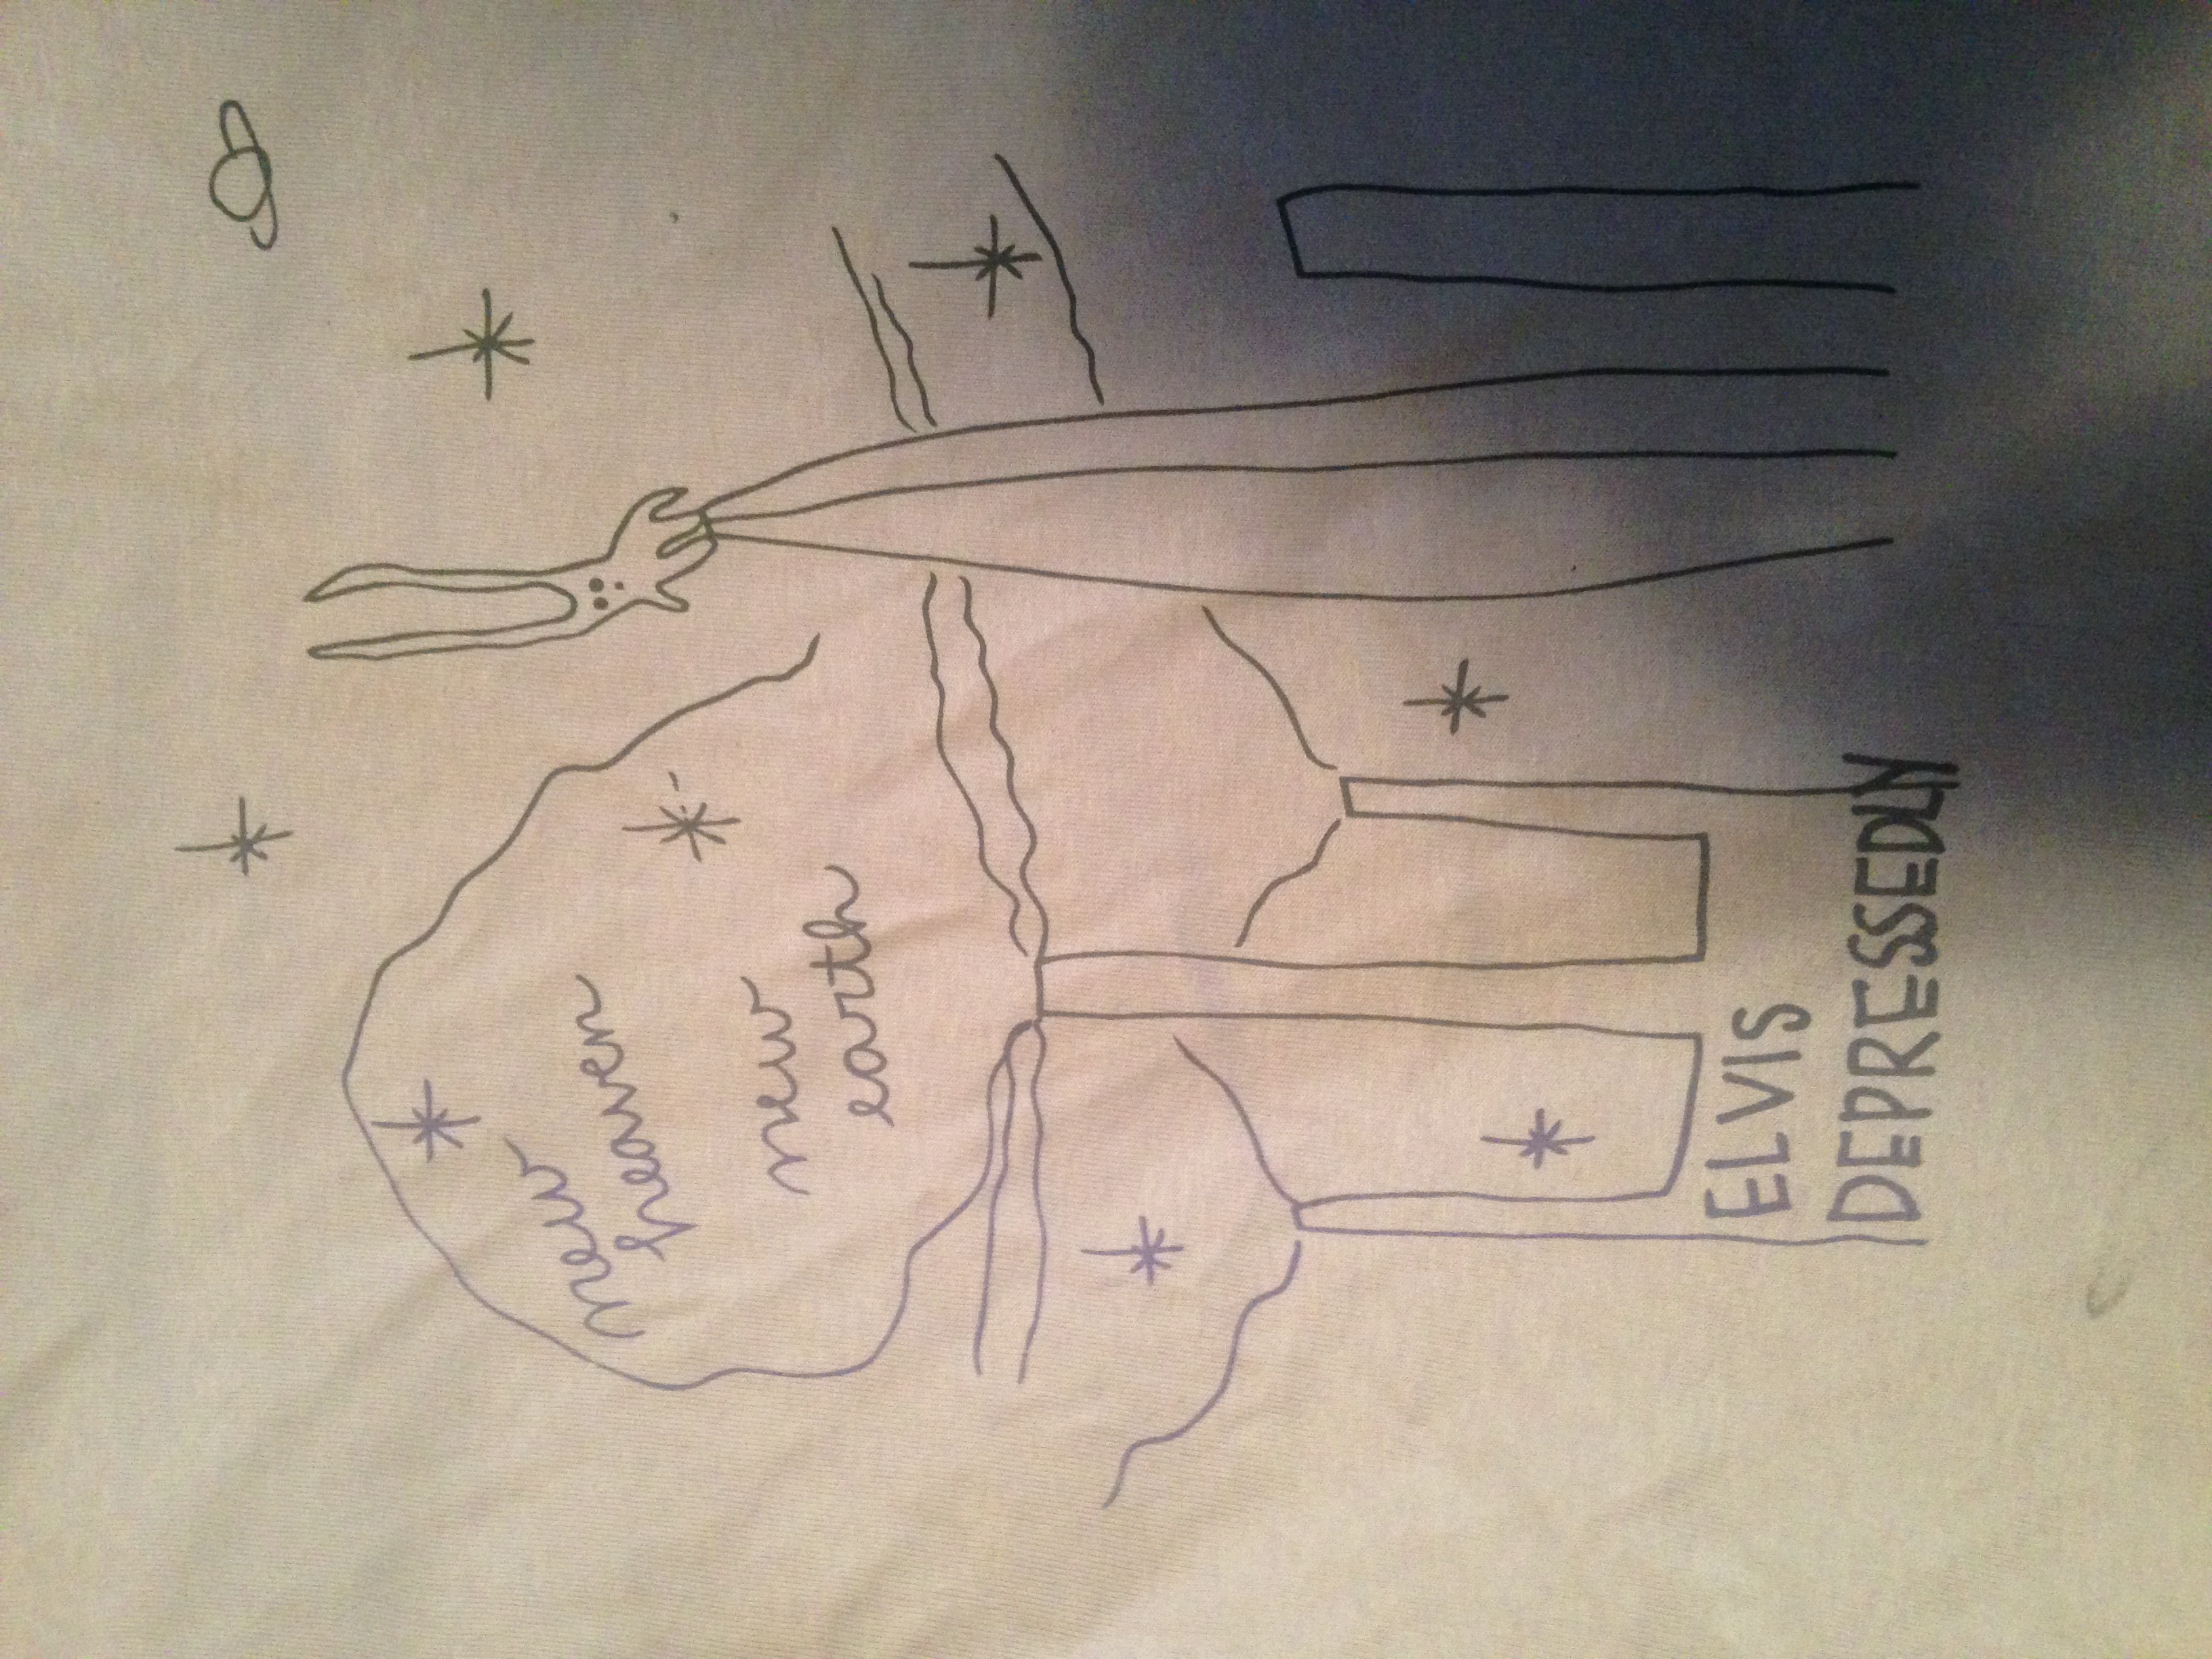 new
heaven
new
earth
ELVIS
DEPRESSEDLY